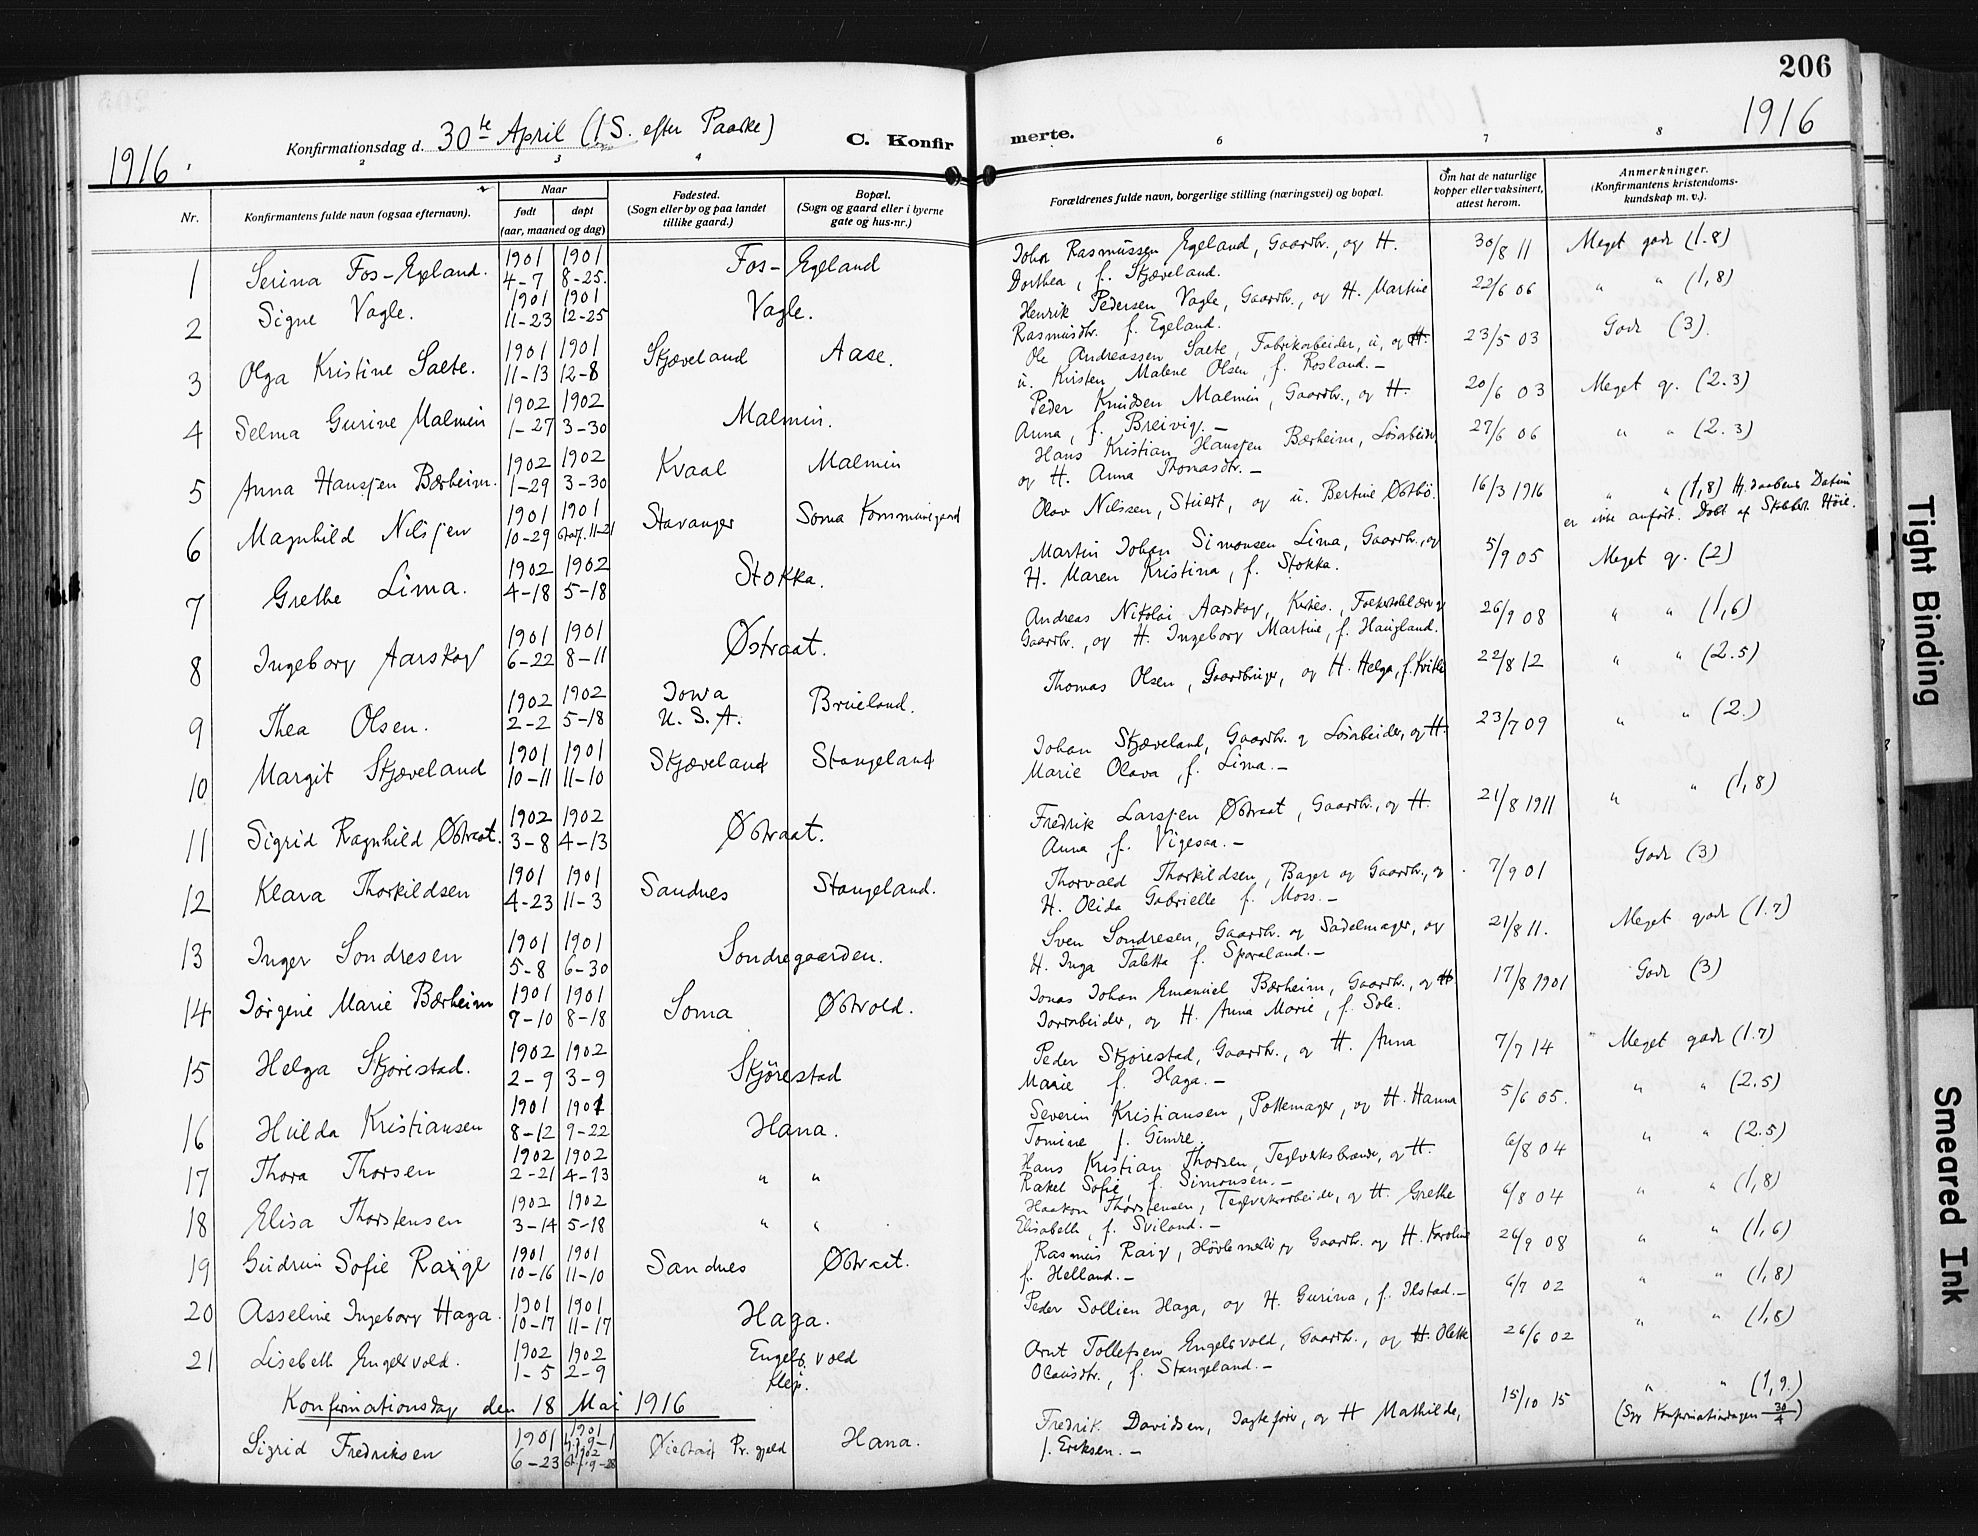 206
1916
1916.
Konfirmationsdag d. 30te April (1 S. efter Paaske)
C. Konfirmerte.
2 3 4 6 7 8
Nr.
Konfirmantens fulde navn (ogsaa efternavn).
Naar
født døpt
(aar, maaned og dag)
Fødested.
(Sogn eller by og paa landet
tillike gaard.)
Bopæl.
(Sogn og gaard eller i byerne
gate og hus-nr.)
Forældrenes fulde navn, borgerlige stilling (næringsvei) og bopæl.
Om hat de naturlige
kopper eller vaksinert,
attest herom.
Anmerkninger.
(Konfirmantens kristendoms-
kundskap m. v.).
1 Serina Fos-Egeland. 1901 4-7 1901 8-25. Fos-Egeland
Johan Rasmussen Egeland, Gaardbr., og H.
Dorthea, f. Skjæveland.
30/8 11 Meget godt (1.8)
2 Signe Vagle. 1901 11-23 1901 12-25 Vagle.
Henrik Pedersen Vagle, Gaardbr., og H. Martine
Rasmusdtr. f. Egeland.
22/6 06 " " (1,8)
3 Olga Kristine Salte. 1901 11-13 1901 12-8 Skjæveland Aase.
Ole Andreassen Salte, Fabrikarbeider, u, og H.
u. Kirsten Malene Olsen f. Rosland.-
23/5 03 Godt (3).
4 Selma Gurine Malmin 1902 1-27 1902 3-30 Malmin.
Peder Knudsen Malmin, Gaardbr., og H.
Anna, f. Breivig.-
20/6 03 Meget g. (2.3)
5 Anna Hansen Bærheim. 1902 1-29 1902 3-30 Kvaal Malmin
Hans Kristian Hansen Bærheim, Løsarbeider
og H. Anna Thomasdtr.-
27/6 06 " " (2.3)
6 Magnhild Nilsen 1901 10-29 1901 11-21 Stavanger Soma Kommunegaard
Olav Nilssen, Stuert, og u. Bertine Østbø.
16/3 1916 " " (1,8) Hj.daabens Datum
er ikke anført. Døbt af Stabskt. Høie.
7 Grethe Lima. 1902 4-18 1902 5-18 Stokka.
Martin Johan Simonsen Lima, Gaardbr., og
H. Maren Kristina, f. Stokka.
5/9 05 Meget g. (2)
8 Ingeborg Aarskog 1901 6-22 1901 8-11 Østraat.
Andreas Nikolai Aarskog, Kirkes., Folkeskolelærer og
Gaardbr., og H. Ingeborg Martine, f. Haugland.
26/9 08 " " (1,6)
9 Thea Olsen. 1902 2-2 1902 5-18 Iowa U.S.A. Brueland.
Thomas Olsen, Gaardbruger, og H. Helga, f. Kvitle
22/8 12 " " (2.5)
10 Margit Skjæveland 1901 10-11 1901 11-10 Skjæveland Stangeland
Johan Skjæveland, Gaardbr. og Løsarbeider, og H.
Marie Olava, f. Lima.-
23/7 09 " " (2.)
11 Sigrid Ragnhild Østraat. 1902 3-8 1902 4-13 Østraat.
Fredrik Larsen Østraat, Gaardbr., og H.
Anna, f. Vigesaa.-
21/8 1911 " " (1,8)
12 Klara Thorkildsen 1901 4-23 1901 11-3 Sandnes Stangeland.
Thorvald Thorkildsen, Bager og Gaardbr., og
H. Olida Gabrielle f. Moss.-
7/9 01 Godt (3)
13 Inger Sondresen 1901 5-8 1901 6-30 Sondregaarden.
Sven Sondresen, Gaardbr. og Sadelmager, og
H. Inga Taletta f. Sporaland.-
21/8 11. Meget godt (1.7)
14 Jørgine Marie Bærheim 1901 7-10 1901 8-18 Soma Østvold.
Jonas Johan Emanuel Bærheim, Gaardbr., og H
Jordarbeider, og H. Anna Marie, f. Sole.
17/8 1901 Godt (3)
15 Helga Skjørestad. 1902 2-9 1902 3-9 Skjørestad
Peder Skjørestad, Gaardbr., og H. Anna
Marie f. Haga.-
7/7 14 Meget godt (1.7)
16 Hilda Kristiansen 1901 8-12 1901 9-22 Hana.
Severin Kristiansen, Pottemager, og H. Hanna
Tomine f. Gimre.
5/6 05. " " (2.5)
17 Thora Thorsen 1902 2-21 1902 4-13 " "
Hans Kristian Thorsen, Teglverksbrænder, og H.
Rakel Sofie, f. Simonsen.-
6/8 04 " " (2.5)
18 Elisa Thorstensen 1902 3-14 1902 5-18 " "
Haakon Thorstensen, Teglverksarbeider, og H. Grethe
Elisabeth, f. Sviland.-
6/8 04 " " (1,8)
19 Gudrun Sofie Raige 1901 10-16 1901 11-10 Sandnes Østraat.
Rasmus Raig, Høvlemester og Gaardbr. og H. Karoline
f. Helland.-
26/9 08 " " (1,6)
20 Asseline Ingeborg Haga. 1901 10-17 1901 11-17 Haga.
Peder Sollien Haga, og H. Gurina, f. Ilstad.-
6/7 02 " " (1,8)
21 Lisebeth Engelsvold. 1902 1-5 1902 2-9 Engelsvold Klep.
Arnt Tollefsen Engelsvold, Gaardbr., og H. Olette
Olausdtr., f. Stangeland.-
26/6 02 " " (1,8)
Konfirmationsdag den 18 Mai 1916
Sigrid Fredriksen 1901 6-23 1901 Hj. 9-1 1902 9-28 Øiestad Pr.gjeld Hana.
Fredrik Davidsen, Jagtefører, og H Mathilde,
f. Eriksen.-
15/10 15 " " (1,9.)
(Syg Konfirmationdagen 30/4)
Tight Binding
Smeared Ink